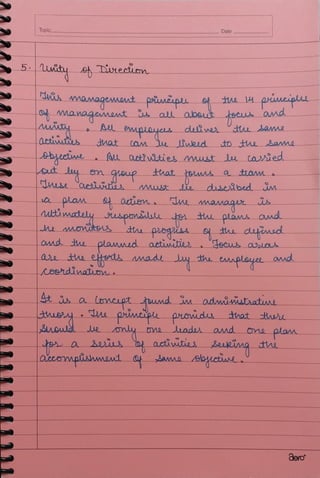 Topic
Date
5. Unity of Direction
This management principle of the 14 principles
of management is all about focus and
unity. All employees deliver the same
activities that can be linked to the same
objective. All activities must be carried
out by on group that forms a team.
These activities must be described in
a plan of action. The manager is
ultimately responsible for this plans and
he monitors the progress of the defined
and the planned activities. Focus areas
are the efforts made by the employee and
coordination.
It is a concept found in administrative
theory. The principle provides that there
should be only one leader and one plan
for a series of activities seeking the
accomplishment of same objective.